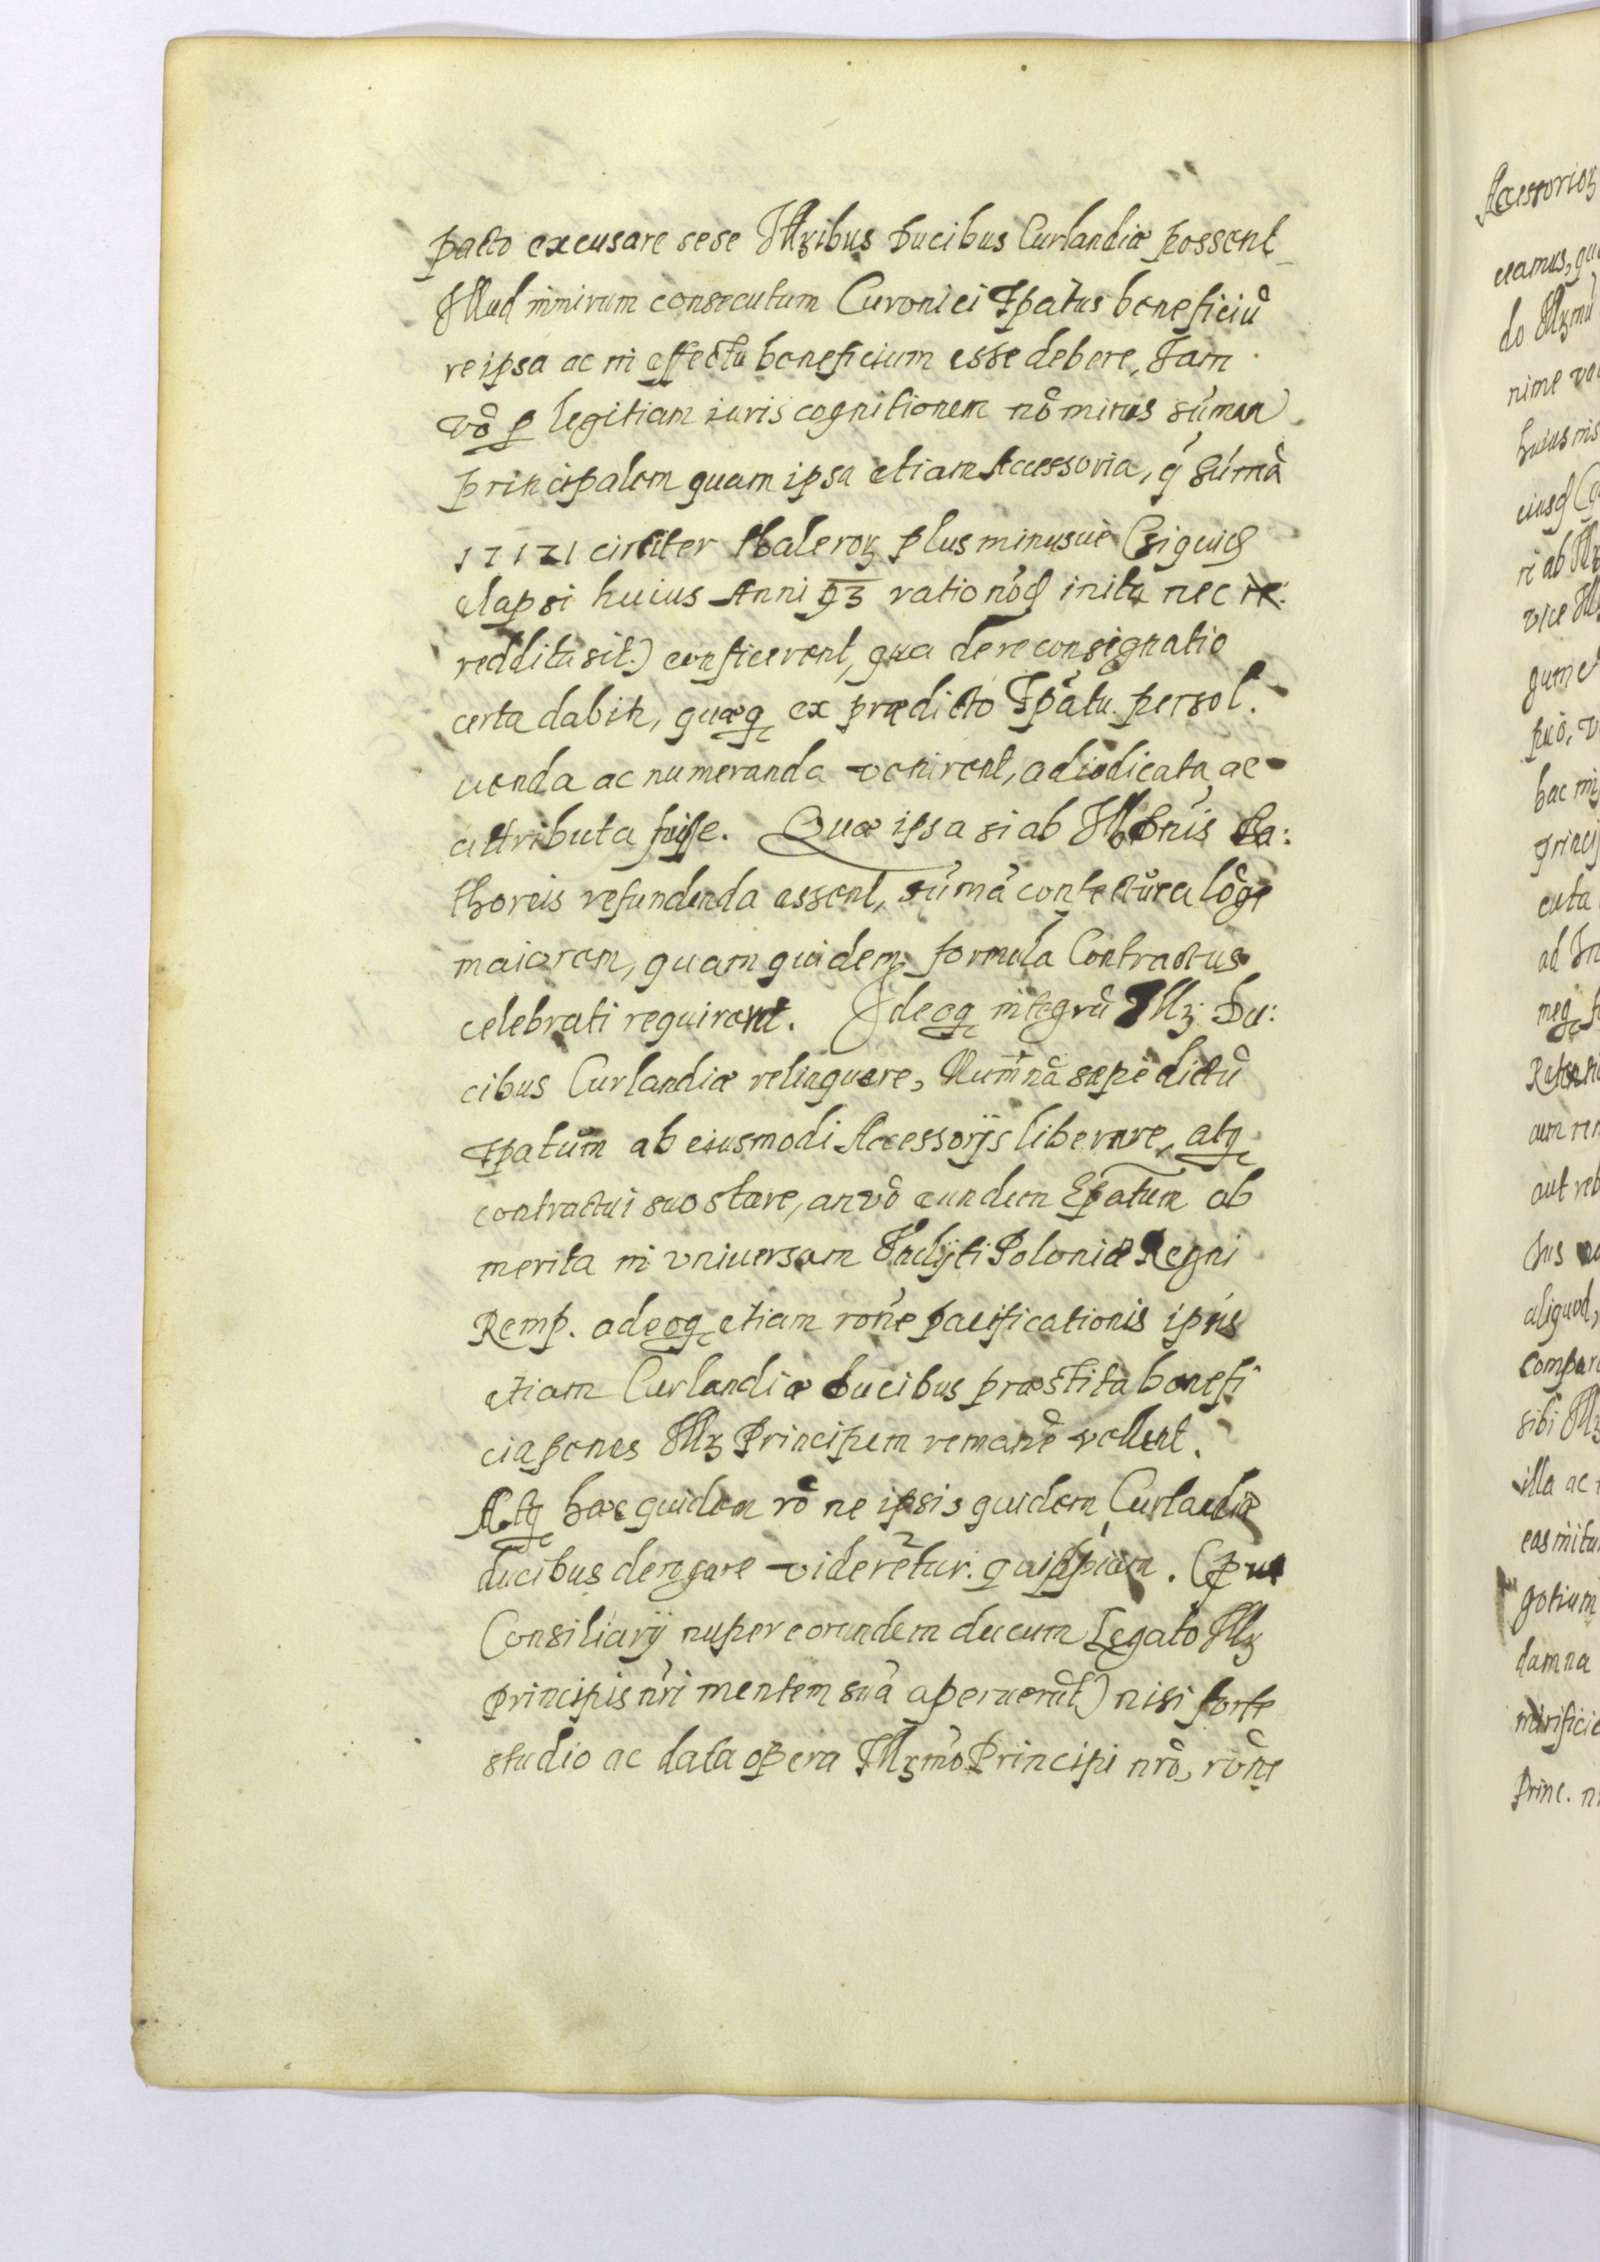 pacto excusare sese Illribus Ducibus Curlandiæ possent
Illud nimirum consecutum Curonici Epatus beneficiū
re ipsa ac in effectu beneficium esse debere, Iam
vō ꝑ legitiam iuris cognitionem nō minus sūman
principalem quam ipsa etiam Accessoria, q̄ sūmā
17121 circiter thaleroꝝ plus minusuè (siquidē
elapsi huius Anni 93 ratio nōdū inita nec
reddita sit.) conficerent, qua de re consignatio
certa dabitr, quæq̨ ex prædicto Epātu persol.
uenda ac numeranda venirent, adiudicata ac
attributa fuisse. Quæ ipsa si ab Illbnis Ba:
thoreis refundenda essent, sūmā contecturā lōge
maiorem, quam quidem formula Contractus
celebrati requirent. Ideoq̨ integrū Illꝫ Du:
cibus Curlandiæ relinquere, Num nā sæpè dictū
Epatum ab eiusmodi Accessorijs liberare, atq̨
contractui suo stare, an vō eundem Epatum ob
merita in vniuersam Inclyti Poloniæ Regni
Remp. adeoq̨ etiam rōne pacificationis ipsis
etiam Curlandiæ ducibus præstita benefi
cia penes Illꝫ Principem remanē vellent.
Atq̨ hæc quidem rō ne ipsis quidem Curlandiæ
ducibus derogare viderētur quippiam. (ꝓut
Consiliarij nuper eorundem ducum Legato Illꝫ
Principis nri mentem suā aperuerūt) nisi forte
studio ac data opera Illꝫmo Principi nrō, rōne
Accessorioꝝ
do Illꝫmū
nime
vice
gum
hac
cuta
neq̨
aut
aliquod,
sibi Illꝫ
illa ac
gotium
damna
Princ.